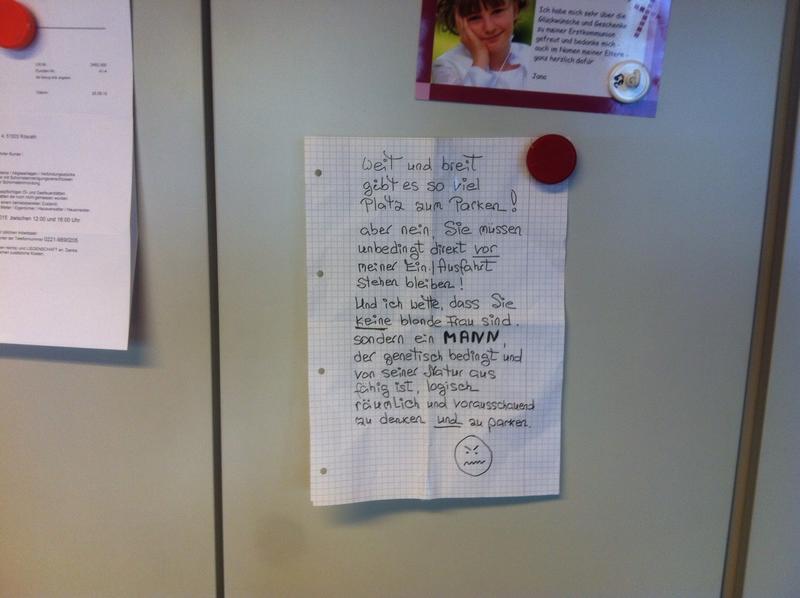 Ich habe mich sehr über die
Glückwünsche und Geschenke
zu meiner Erstkommunion
gefreut und bedanke mich -
auch im Namen meiner Eltern -
ganz herzlich dafür
Jana
Weit und breit
gibt es so viel
Platz zum Parken!
aber nein, Sie müssen
unbedingt direkt vor
meiner Ein-/Ausfahrt
stehen bleiben!
Und ich wette, dass Sie
keine blonde Frau sind.
sondern ein MANN,
der genetisch bedingt und
von seiner Natur aus
fähig ist, logisch
räumlich und vorausschauend
zu denken und zu parken.
Datum:
zwischen 12:00 und 16:00 Uhr